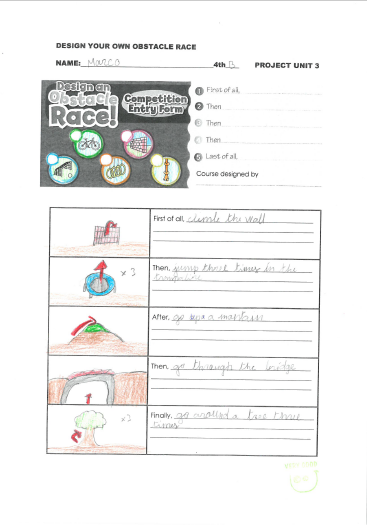 DESIGN YOUR OWN OBSTACLE RACE
NAME: Marco 4th B PROJECT UNIT 3
Design an
Obstacle
Race!
Competition
Entry Form
1 First of all,
2 Then
3 Then
4 Then
5 Last of all,
Course designed by
First of all, climb the wall
x 3
Then, jump three times in the
After, go up a
Then, go through the bridge
x3
Finally, go around a tree three
times